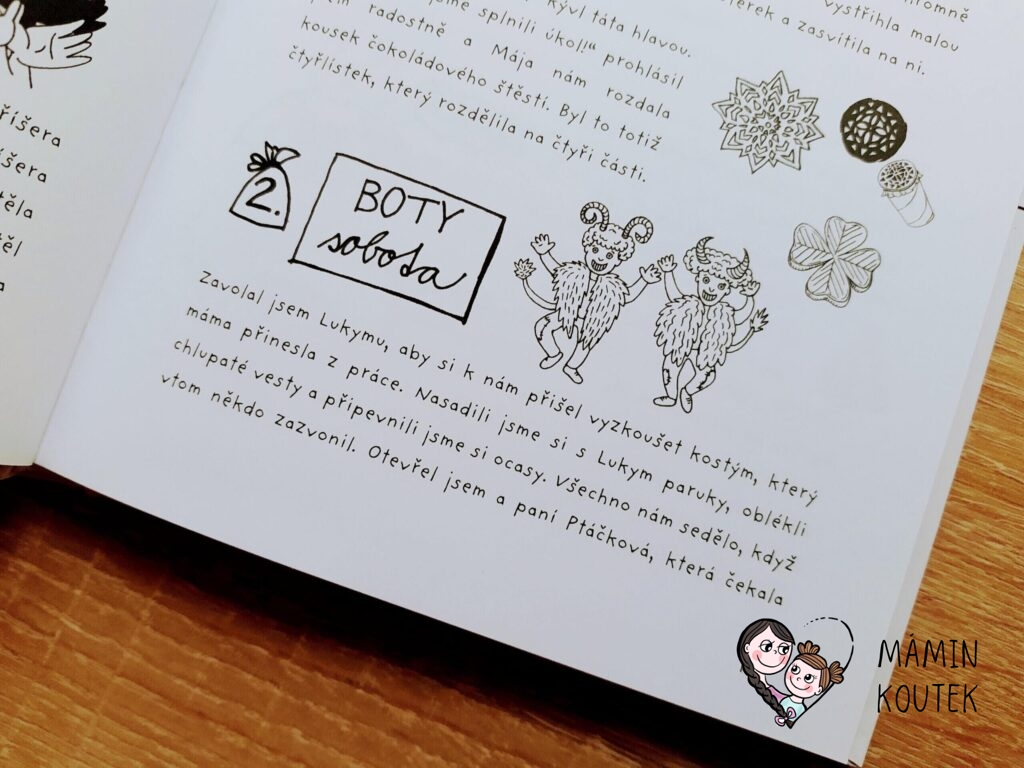 říšera
íšera
ěla
ěl
a
kývl táta hlavou.
splnili úkol!“ prohlásil
radostně a Mája nám rozdala
kousek čokoládového štěstí. Byl to totiž
čtyřlístek, který rozdělila na čtyři části.
vystřihla malou
a zasvítila na ni.
2.
BOTY
sobota
Zavolal jsem Lukymu, aby si k nám přišel vyzkoušet kostým, který
máma přinesla z práce. Nasadili jsme si s Lukym paruky, oblékli
chlupaté vesty a připevnili jsme si ocasy. Všechno nám sedělo, když
vtom někdo zazvonil. Otevřel jsem a paní Ptáčková, která čekala
MÁMIN
KOUTEK